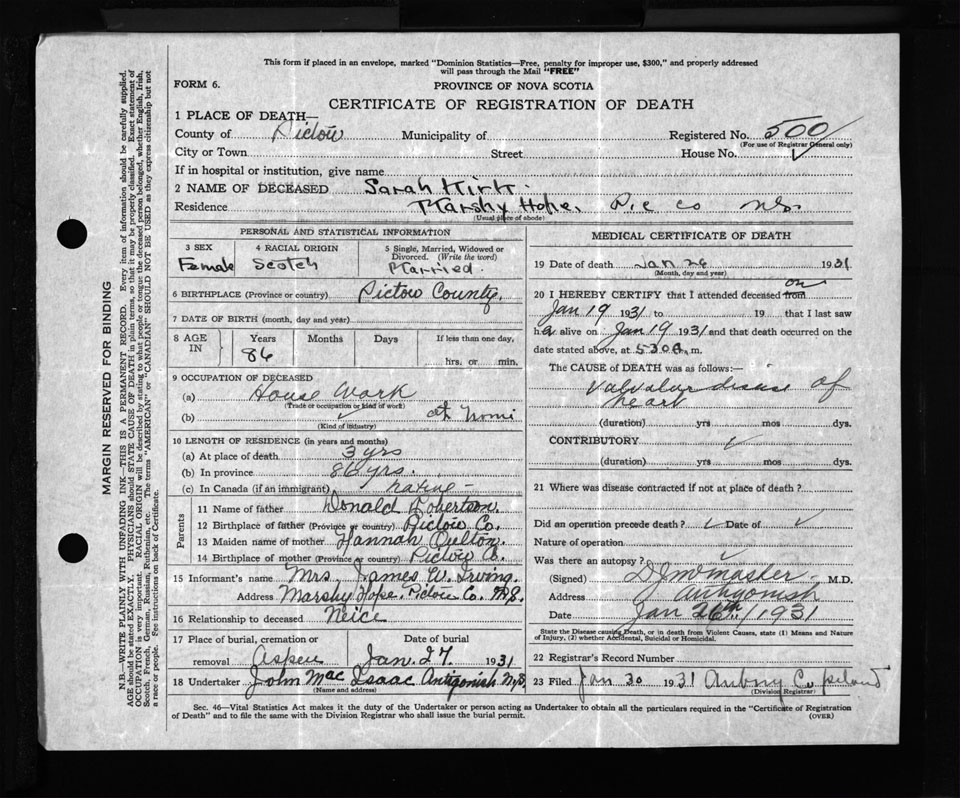 This form if placed in an envelope, marked "Dominion Statistics—Free, penalty for improper use, $300," and properly addressed
will pass through the Mail "FREE"
FORM 6.
PROVINCE OF NOVA SCOTIA
CERTIFICATE OF REGISTRATION OF DEATH
1 PLACE OF DEATH—
County of Pictou Municipality of Registered No. 500
(For use of Registrar General only)
City or Town Street House No.
If in hospital or institution, give name
2 NAME OF DECEASED Sarah Kirk.
Residence Marshy Hope, Pic Co N.S.
(Usual place of abode)
PERSONAL AND STATISTICAL INFORMATION
3 SEX 4 RACIAL ORIGIN 5 Single, Married, Widowed or
Divorced. (Write the word)
Female Scotch Married.
6 BIRTHPLACE (Province or country) Pictou County.
7 DATE OF BIRTH (month, day and year)
8 AGE IN Years Months Days If less than one day,
86 hrs. or min.
9 OCCUPATION OF DECEASED
(a) House Work
(Trade or occupation or kind of work)
(b) at home
(Kind of industry)
10 LENGTH OF RESIDENCE (in years and months)
(a) At place of death 3 yrs
(b) In province 86 yrs.
(c) In Canada (if an immigrant) native —
Parents
11 Name of father Donald Robertson.
12 Birthplace of father (Province or country) Pictou Co.
13 Maiden name of mother Hannah Oulton.
14 Birthplace of mother (Province or country) Pictou Co.
15 Informant's name Mrs. James W. Irving.
Address Marshy Hope, Pictou Co. N.S.
16 Relationship to deceased Neice
17 Place of burial, cremation or Date of burial
removal Aspen Jan. 27 1931
18 Undertaker John MacIsaac Antigonish N.S.
(Name and address)
MEDICAL CERTIFICATE OF DEATH
19 Date of death Jan 26 1931
(Month, day and year)
20 I HEREBY CERTIFY that I attended deceased from on
Jan 19 1931 to 19 that I last saw
h alive on Jan 19 1931 and that death occurred on the
date stated above, at 5 30 a. m.
The CAUSE OF DEATH was as follows:—
Valvular disease of
heart
(duration) yrs mos dys.
CONTRIBUTORY
(duration) yrs mos dys.
21 Where was disease contracted if not at place of death?
Did an operation precede death? Date of
Nature of operation
Was there an autopsy?
(Signed) M.D.
Address Antigonish
Date Jan 26th 1931
State the Disease causing Death, or in death from Violent Causes, state (1) Means and Nature
of Injury, (2) whether Accidental, Suicidal or Homicidal.
22 Registrar's Record Number
23 Filed Jan 30 1931 Copeland
(Division Registrar)
Sec. 46—Vital Statistics Act makes it the duty of the Undertaker or person acting as Undertaker to obtain all the particulars required in the "Certificate of Registration
of Death" and to file the same with the Division Registrar who shall issue the burial permit.
(OVER)
MARGIN RESERVED FOR BINDING
N.B.—WRITE PLAINLY WITH UNFADING INK—THIS IS A PERMANENT RECORD. Every item of information should be carefully supplied.
AGE should be stated EXACTLY. PHYSICIANS should STATE CAUSE OF DEATH in plain terms, so that it may be properly classified. Exact statement of
OCCUPATION is very important. RACIAL ORIGIN will be described by stating to what people or tongue the deceased person belonged, whether English, Irish,
Scotch, French, German, Russian, Ruthenian, etc. The terms "AMERICAN" or "CANADIAN" SHOULD NOT BE USED as they express citizenship but not
a race or people. See instructions on back of Certificate.